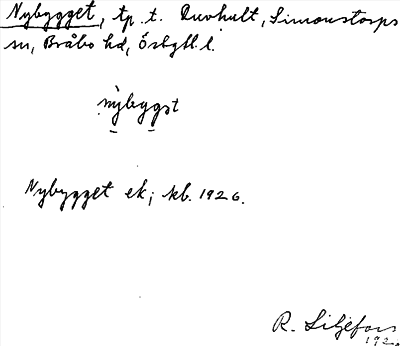 Nybygget, tp. t. Duvhult, Simonstorps
sn, Bråbo hd, Östgtl. l.
nỳbyggət
Nybygget ek; kb. 1926.
R. Liljefors